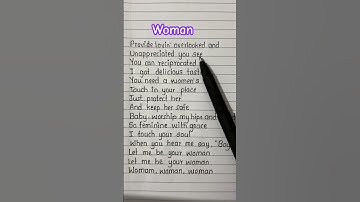 Woman
Provide lovin' overlooked and
Unappreciated you see
You can reciprocated
I got delicious tast
You need a women's
Touch in your place
Just protect her
And keep her safe
Baby worship my hips and
So feminine with grace
I touch your soul
When you hear me say, "Boy"
Let me be your woman
Let me be your woman
Womam, woman, woman